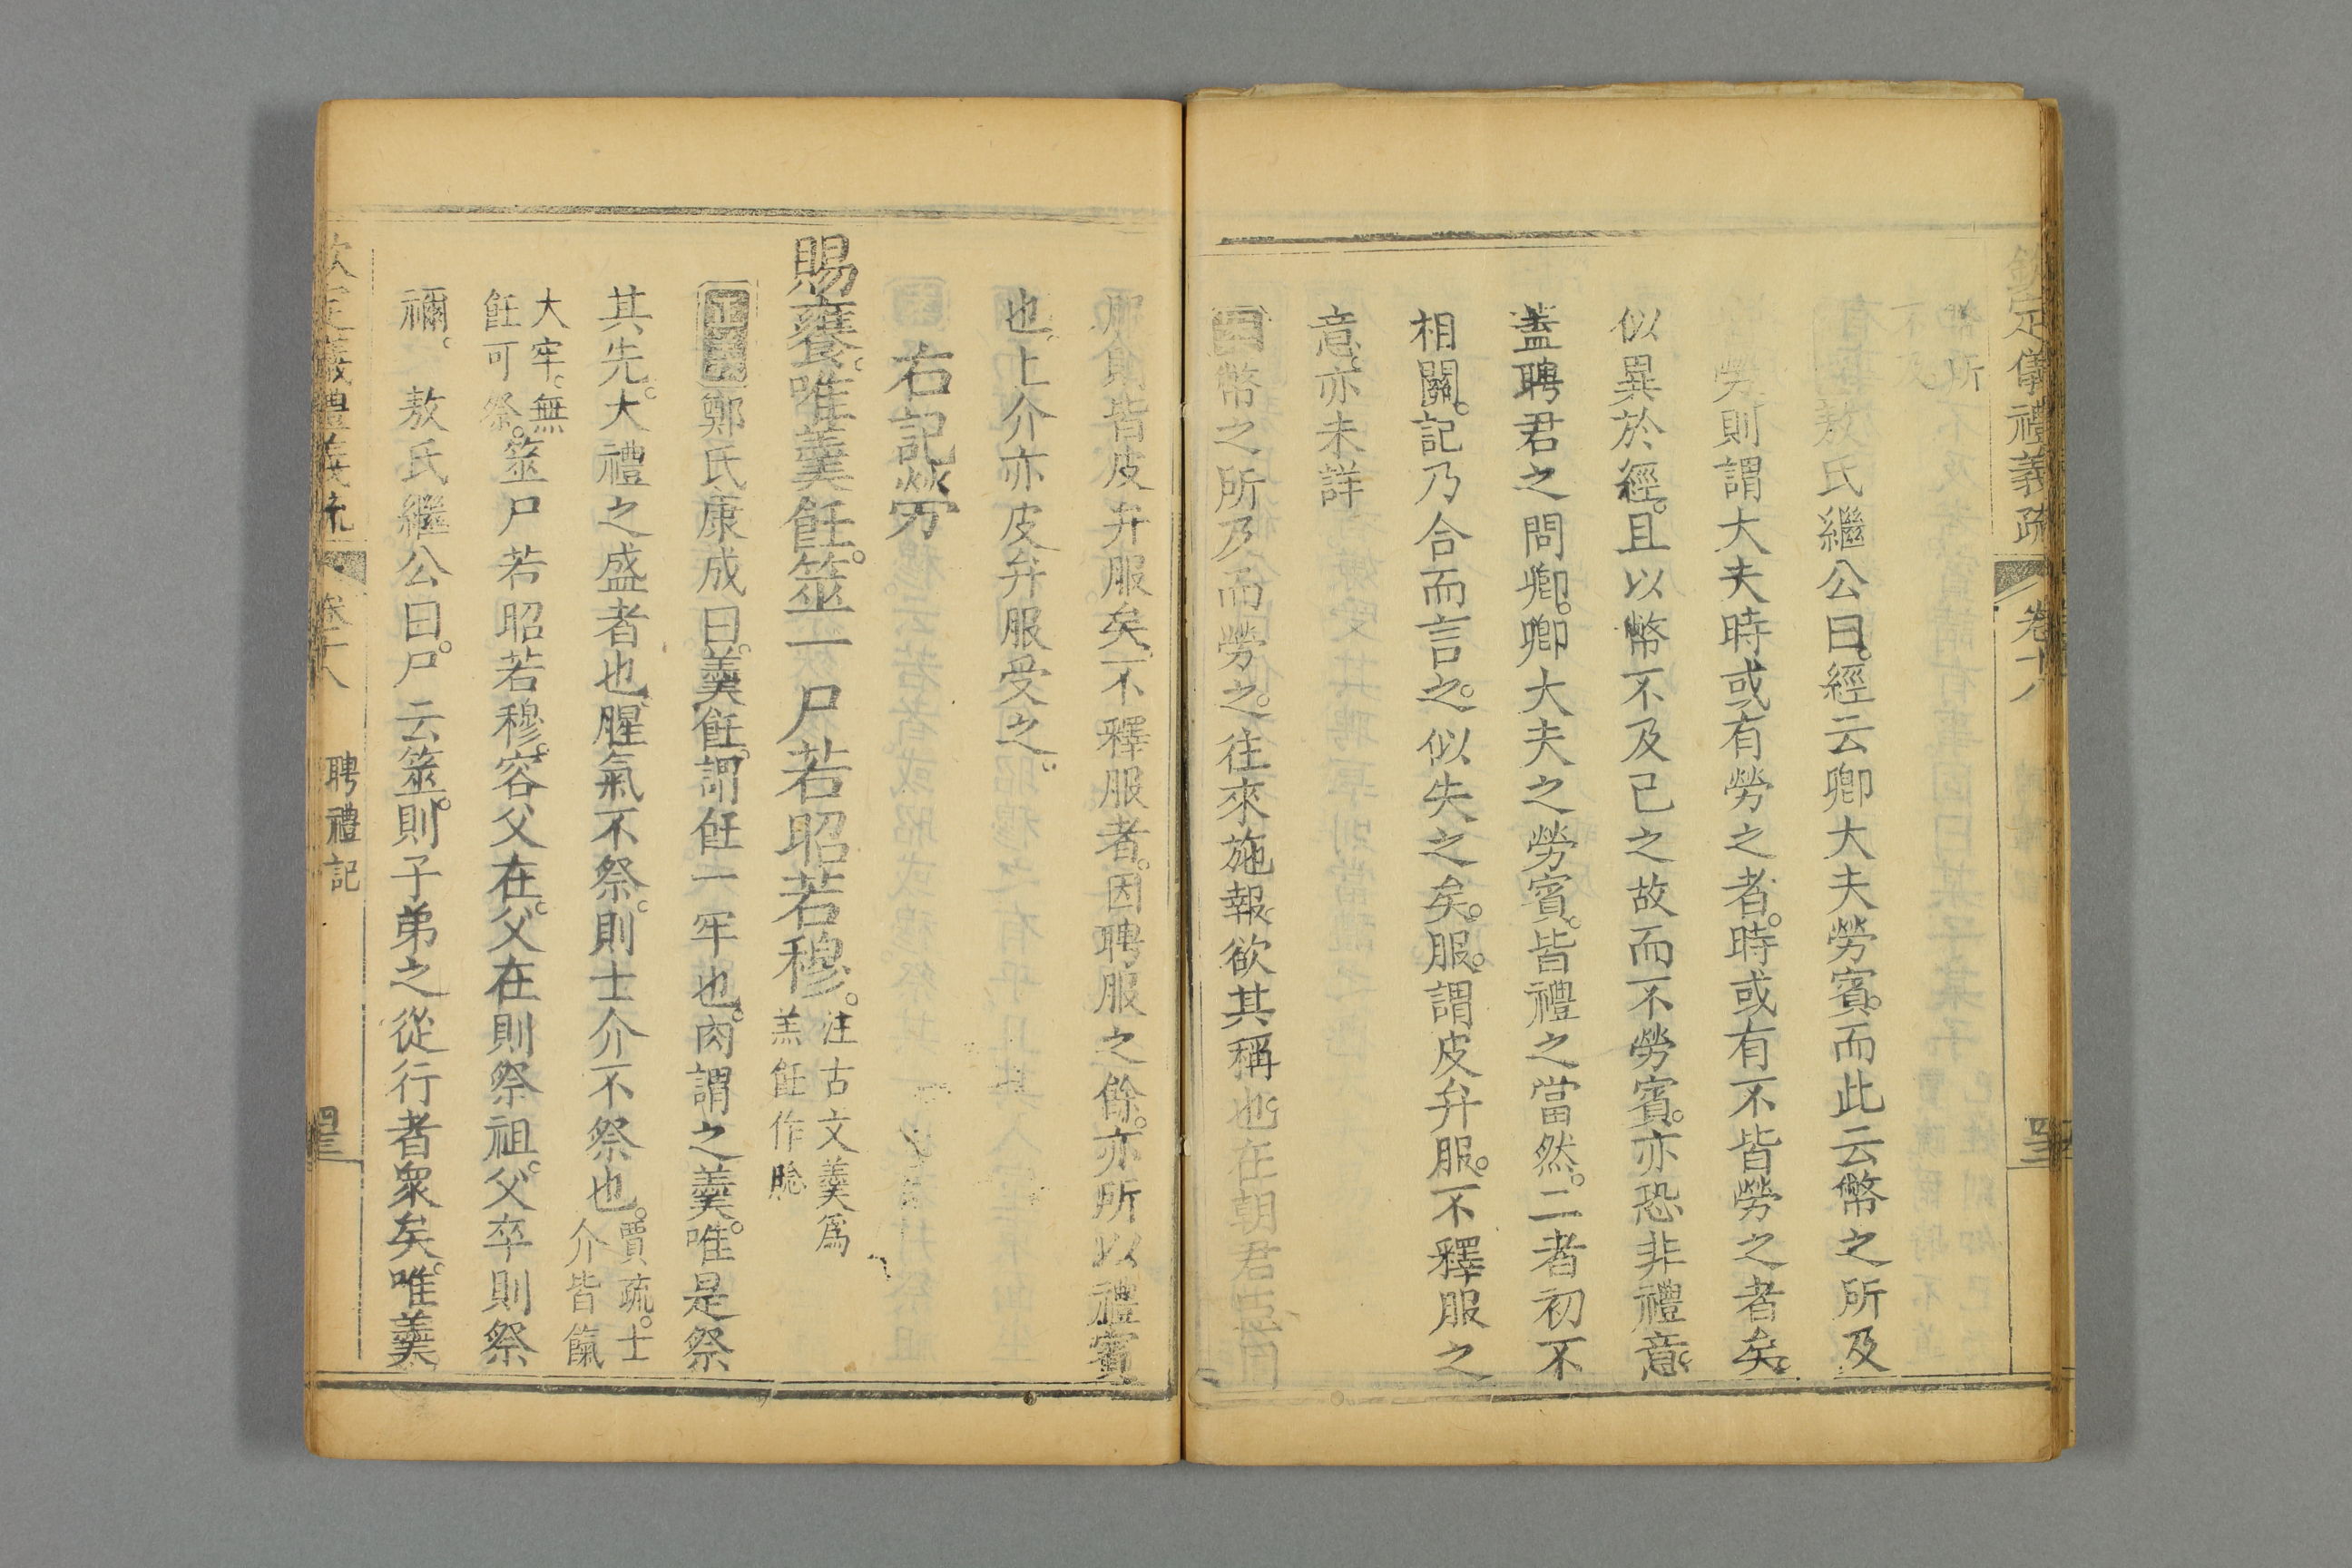 欽定儀禮義疏 卷十八
所
敖氏繼公曰經云卿大夫勞賓而此云幣之所及
勞則謂大夫時或有勞之者時或有不皆勞之者矣
似異於經且以幣不及已之故而不勞賓亦恐非禮意
蓋聘君之問卿卿大夫之勞賓皆禮之當然二者初不
相關記乃合而言之似失之矣服謂皮弁服不釋服之
意亦未詳
幣之所及而勞之往來施報欲其稱也在朝君臣
卽館皆皮弁服矣不釋服者因聘服之餘亦所以禮賓
也上介亦皮弁服受之
右記勞
賜饔唯羹飪筮一尸若昭若穆注古文羹爲
羔飪作腍
正義鄭氏康成曰羹飪謂飪一牢也肉謂之羹唯是祭
其先大禮之盛者也腥氣不祭則士介不祭也賈疏士
介皆餼
大牢無
飪可祭筮尸若昭若穆容父在父在則祭祖父卒則祭
禰 敖氏繼公曰尸云筮則子弟之從行者衆矣唯羹
欽定儀禮義疏 卷十八 聘禮記